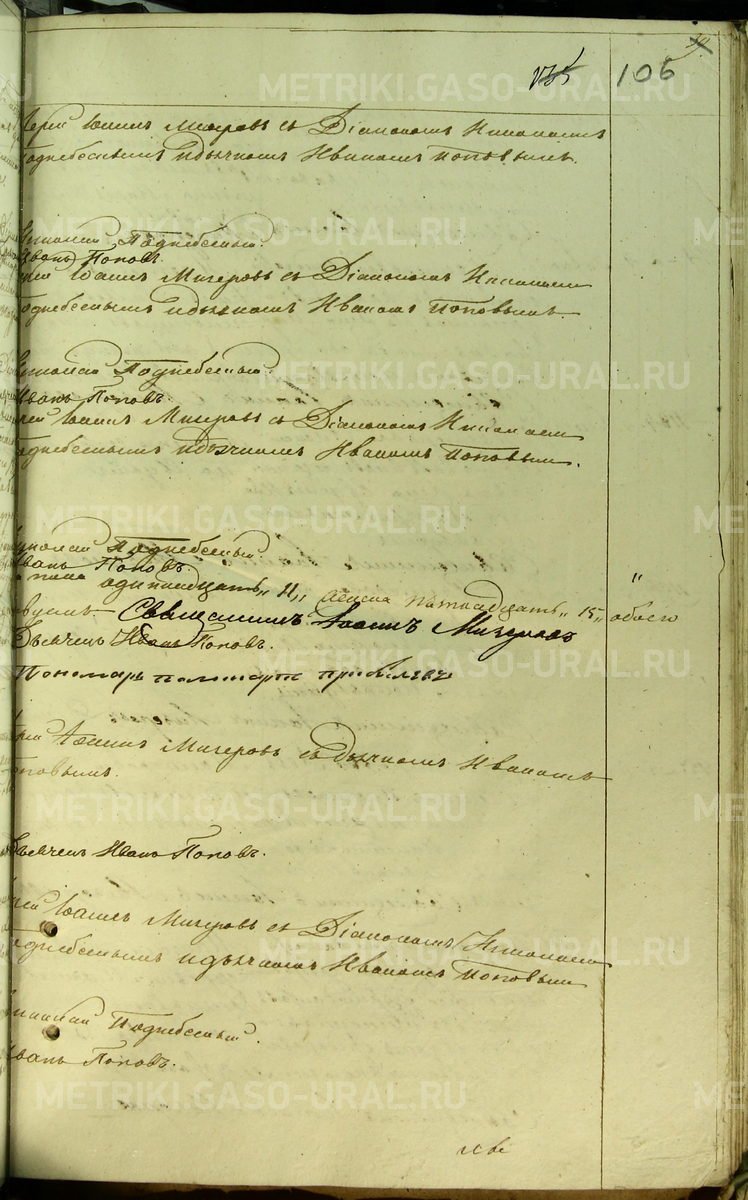 105
Іерей Іоаннъ Мизеровъ съ Діакономъ Николаемъ
Поднебеснымъ и дьячкомъ Иваномъ Поповымъ.
Николай Поднебесный.
Иванъ Поповъ
Іерей Іоаннъ Мизеровъ съ Діакономъ Николаем
Поднебеснымъ и дьячкомъ Иваномъ Поповымъ.
Николай Поднебесный.
Иванъ Поповъ.
Іерей Іоаннъ Мизеровъ съ Діакономъ Николаем
Поднебеснымъ и дьячкомъ Иваномъ Поповым.
Николай Поднебесный.
Иванъ Поповъ.
пола одиннадцать „11„ женска пятнадцать „15„ обоего
Священникъ Іоаннъ Мизеровъ
Дьячекъ Иванъ Поповъ.
Пономарь
Іерей Іоаннъ Мизеровъ съ дьячкомъ Иваномъ
Поповымъ.
Дьячекъ Иванъ Поповъ.
Іерей Іоаннъ Мизеровъ съ Діакономъ Николаем
Поднебеснымъ и дьячкомъ Иваномъ Поповым
Николай Поднебесный.
Иванъ Поповъ.
METRIKI.GASO-URAL.RU